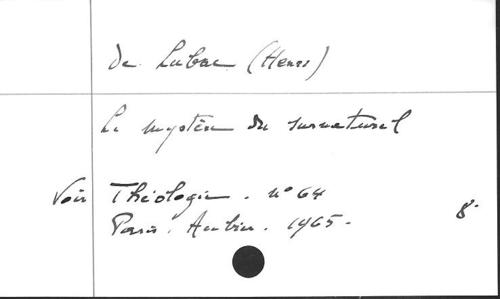 de Lubac (Henri)
Le mystère du surnaturel
Voir Théologie. n° 64
Paris. Aubier. 1965.
8°